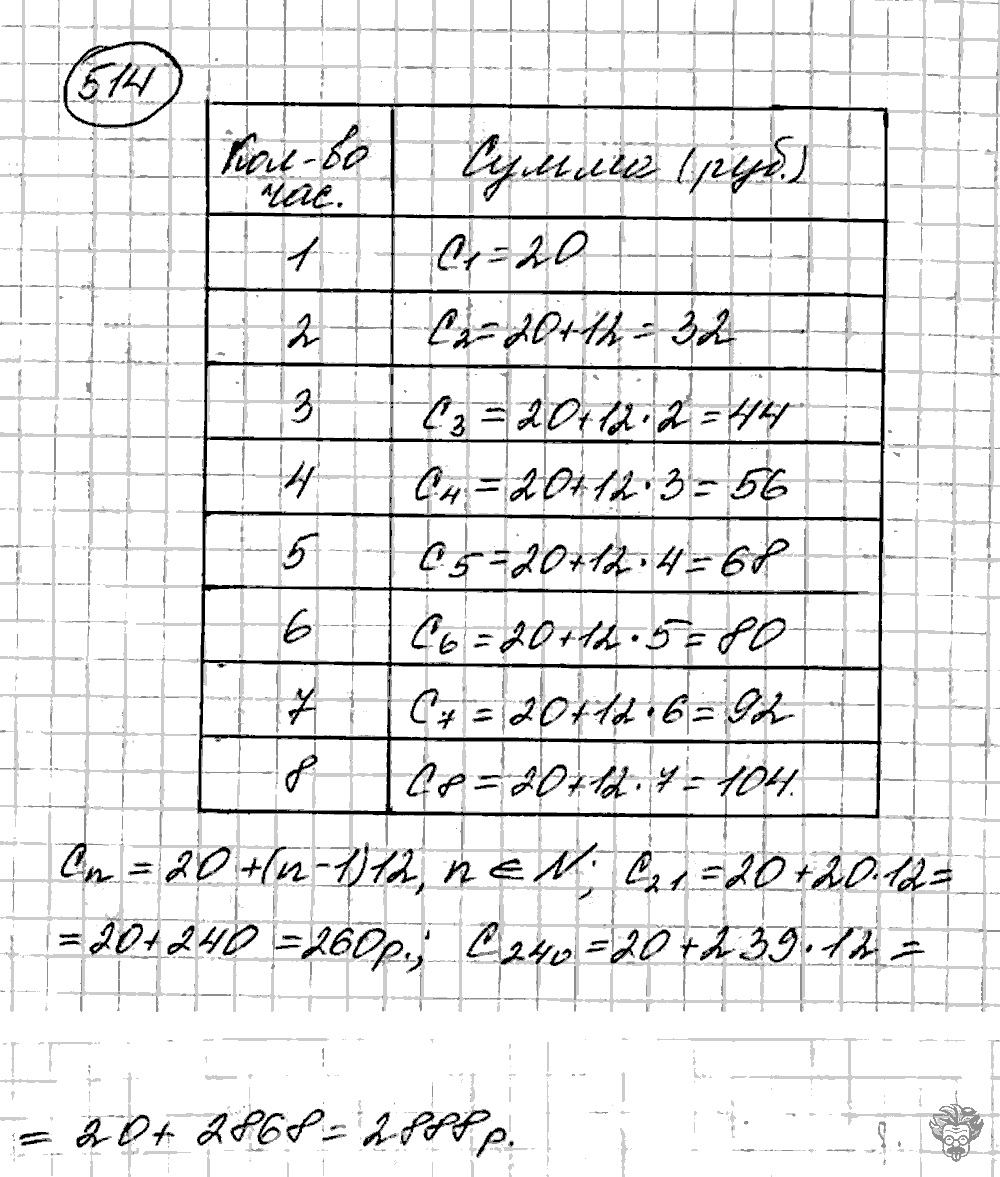 514
Кол-во час. Сумма (руб.)
1 C₁ = 20
2 C₂ = 20+12 = 32
3 C₃ = 20+12·2 = 44
4 C₄ = 20+12·3 = 56
5 C₅ = 20+12·4 = 68
6 C₆ = 20+12·5 = 80
7 C₇ = 20+12·6 = 92
8 C₈ = 20+12·7 = 104
Cₙ = 20+(n-1)12, n ∈ N; C₂₁ = 20+20·12 =
= 20+240 = 260р.; C₂₄₀ = 20+239·12 =
= 20+ 2868 = 2888р.